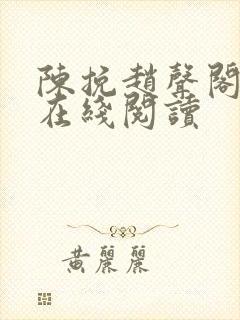 陳挽趙聲閣
在綫閱讀
黃麗麗